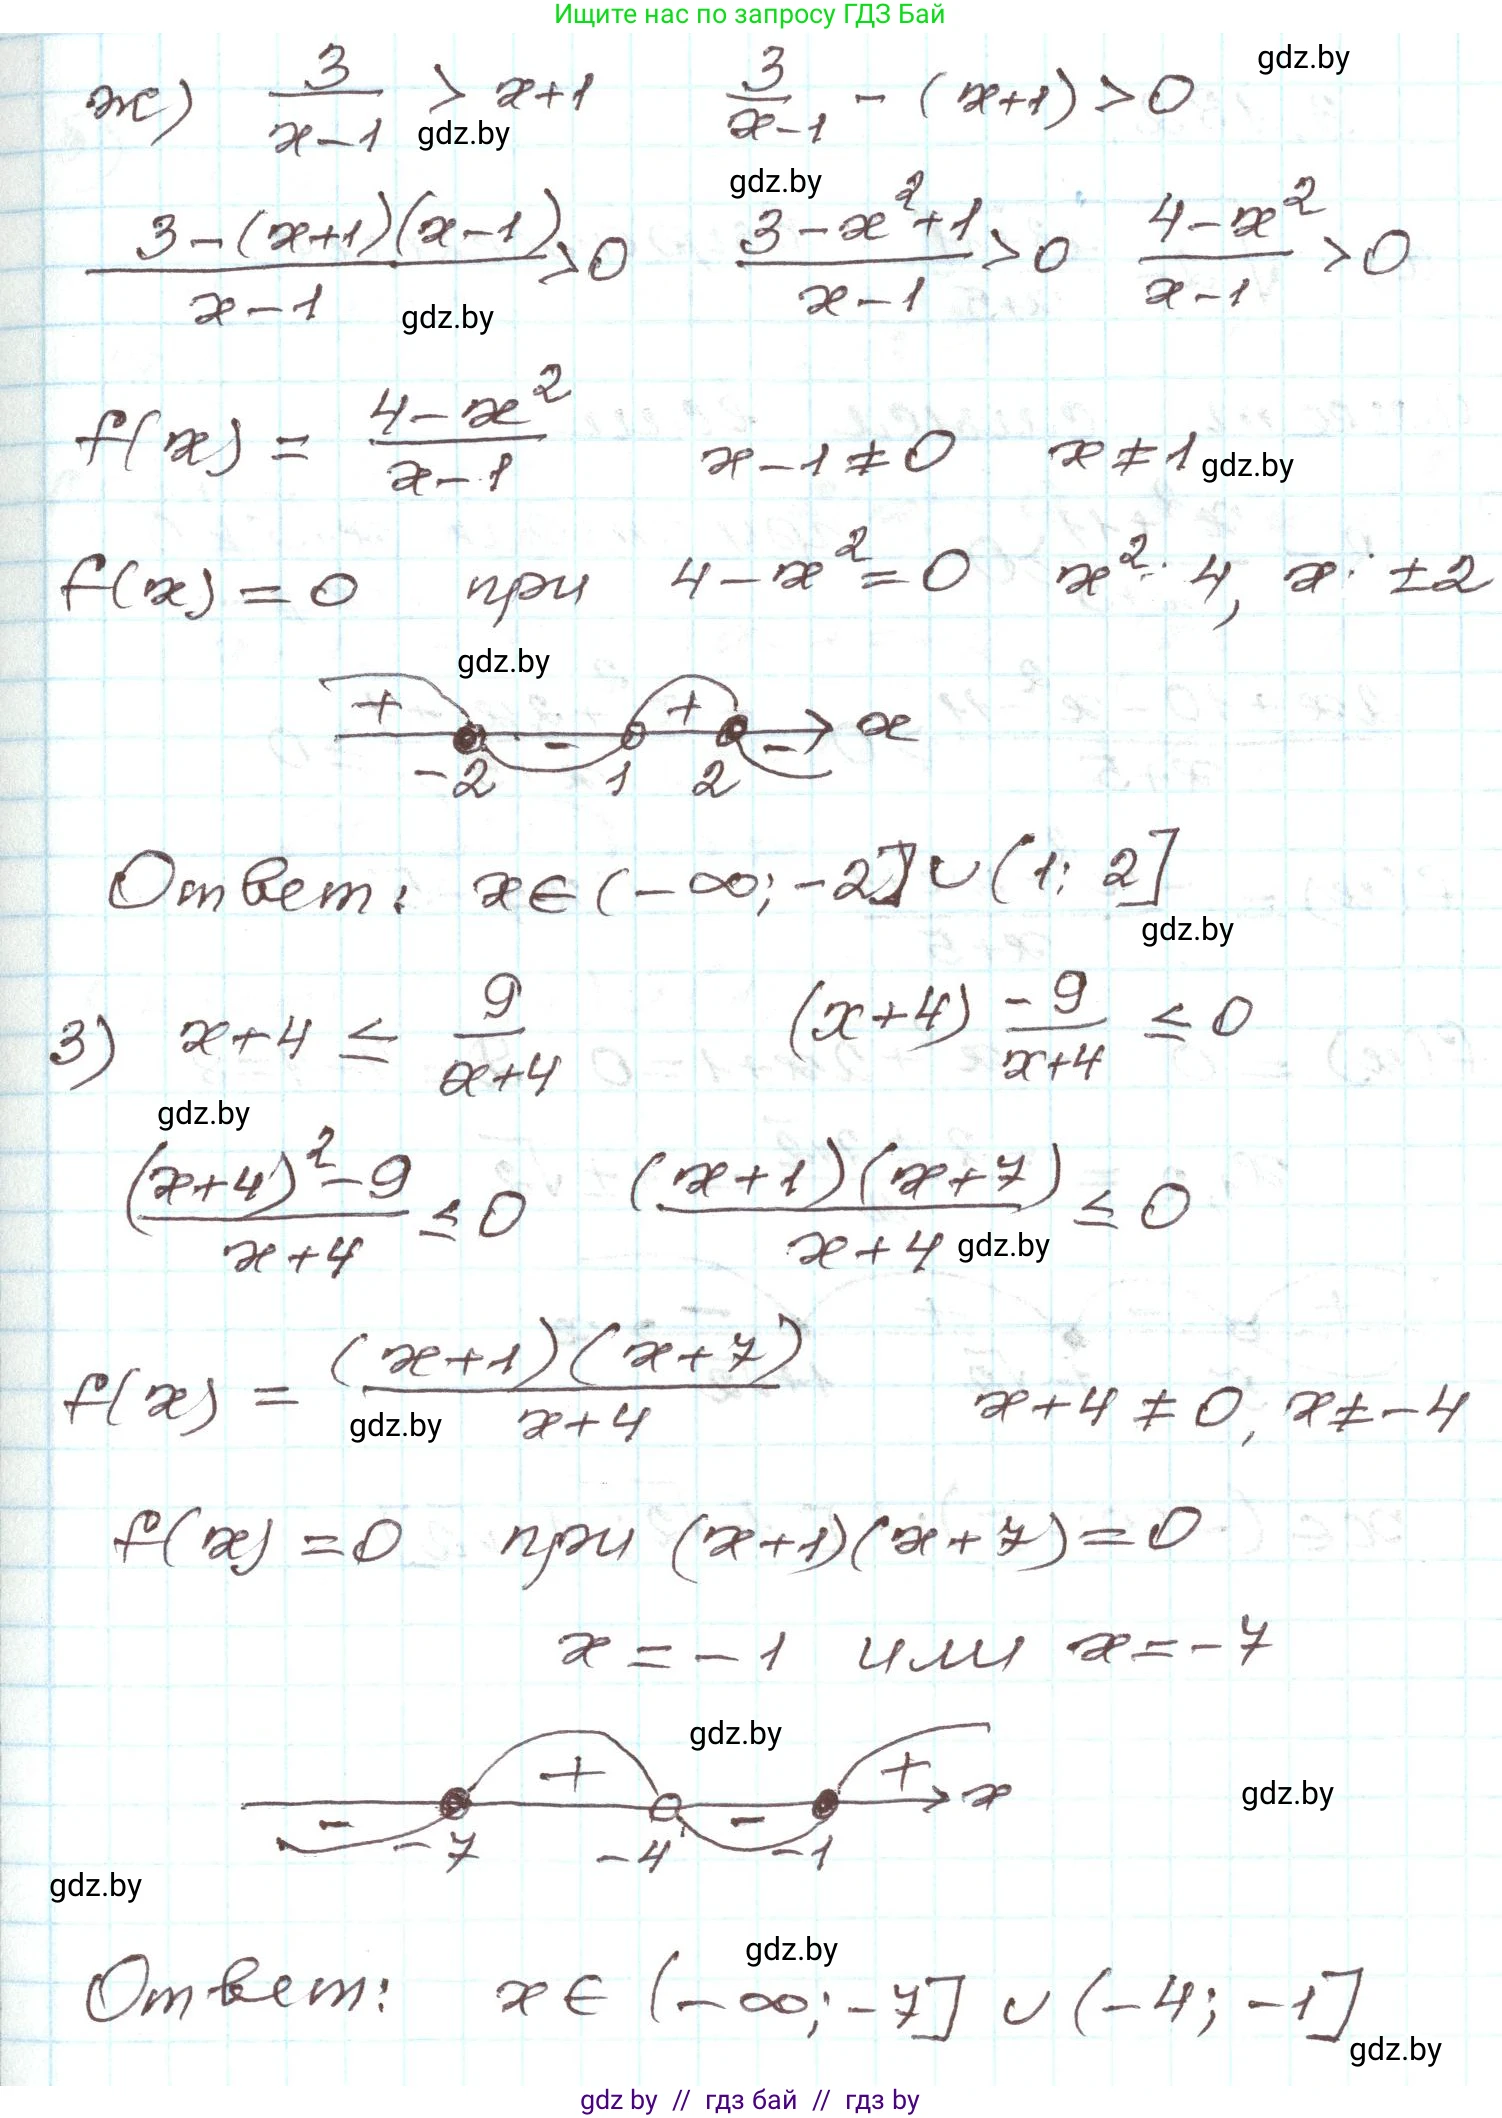 Ищите нас по запросу ГДЗ Бай
ж) 3/(x-1) > x+1   3/(x-1) - (x+1) > 0
gdz.by
gdz.by
gdz.by
(3-(x+1)(x-1))/(x-1) > 0   (3-x²+1)/(x-1) > 0   (4-x²)/(x-1) > 0
gdz.by
f(x) = (4-x²)/(x-1)   x-1≠0   x≠1
gdz.by
f(x) = 0 при 4-x²=0   x² = 4, x = ±2
gdz.by
+ - + - x
-2 1 2
Ответ: x∈(-∞; -2]∪(1; 2]
gdz.by
з) x+4 ≤ 9/(x+4)   (x+4) -9/(x+4) ≤ 0
gdz.by
((x+4)²-9)/(x+4) ≤ 0   ((x+1)(x+7))/(x+4) ≤ 0
gdz.by
f(x) = ((x+1)(x+7))/(x+4)   x+4≠0, x≠-4
gdz.by
f(x) = 0 при (x+1)(x+7)=0
x = -1 или x = -7
gdz.by
- + - + x
gdz.by
-7 -4 -1
gdz.by
gdz.by
Ответ: x∈(-∞; -7]∪(-4; -1]
gdz.by
gdz by // гдз бай // гдз by